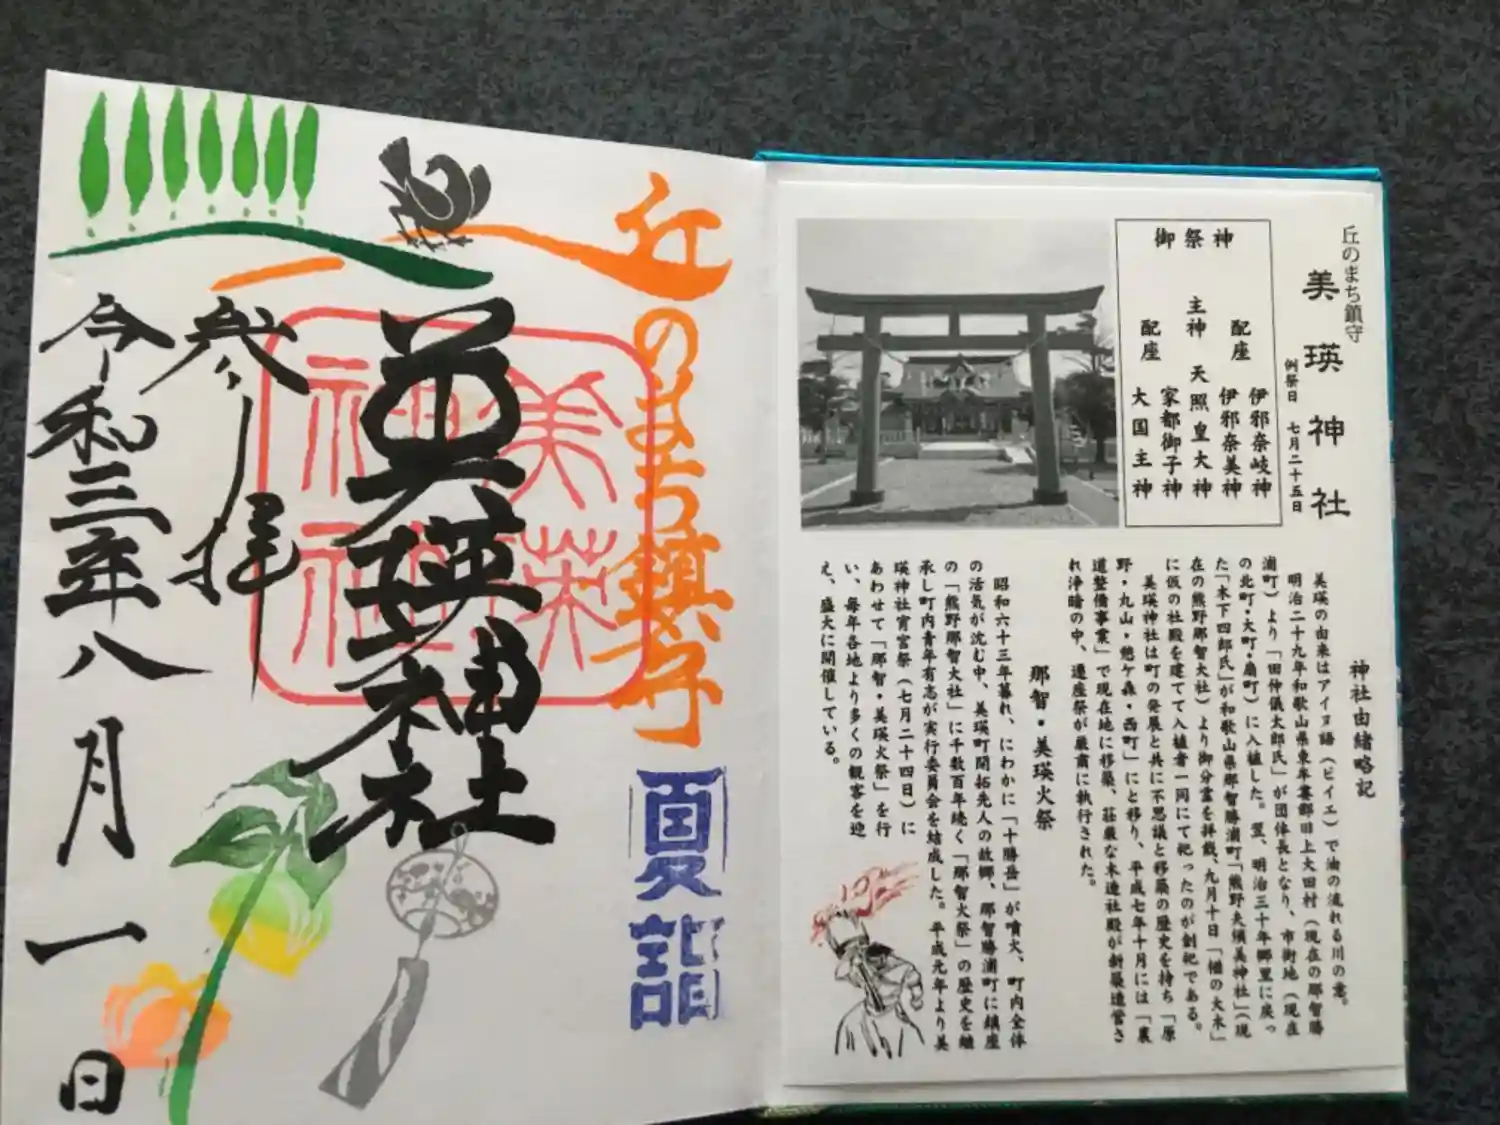 丘のまち鎮守
美瑛神社
例祭日 七月二十五日
御祭神
配座 伊邪奈岐神
伊邪奈美神
主神 天照皇大神
配座 家都御子神
大国主神
神社由緒略記
美瑛の由来はアイヌ語(ピイエ)で油の流れる川の意。
明治二十九年和歌山県東牟婁郡旧上太田村(現在の那智勝
浦町)より「田仲儀太郎氏」が団体長となり、市街地(現在
の北町・大町・扇町)に入植した。翌、明治三十年郷里に戻っ
た「木下四郎氏」が和歌山県那智勝浦町「熊野夫須美神社」(現
在の熊野那智大社)より御分霊を拝戴、九月十日「楢の大木」
に仮の社殿を建てて入植者一同にて祀ったのが創祀である。
美瑛神社は町の発展と共に不思議と移築の歴史を持ち「原
野・丸山・憩ケ森・西町」にと移り、平成七年十月には「裏
道整備事業」で現在地に移築、荘厳な木造社殿が新築造営さ
れ浄暗の中、遷座祭が厳粛に執行された。
那智・美瑛火祭
昭和六十三年暮れ、にわかに「十勝岳」が噴火、町内全体
の活気が沈む中、美瑛町開拓先人の故郷、那智勝浦町に鎮座
の「熊野那智大社」に千数百年続く「那智火祭」の歴史を継
承し町内青年有志が実行委員会を結成した。平成元年より美
瑛神社宵宮祭(七月二十四日)に
あわせて「那智・美瑛火祭」を行
い、毎年各地より多くの観客を迎
え、盛大に開催している。
丘のまち鎮守
夏詣
美瑛神社
美葉神社
参拝
令和三年八月一日